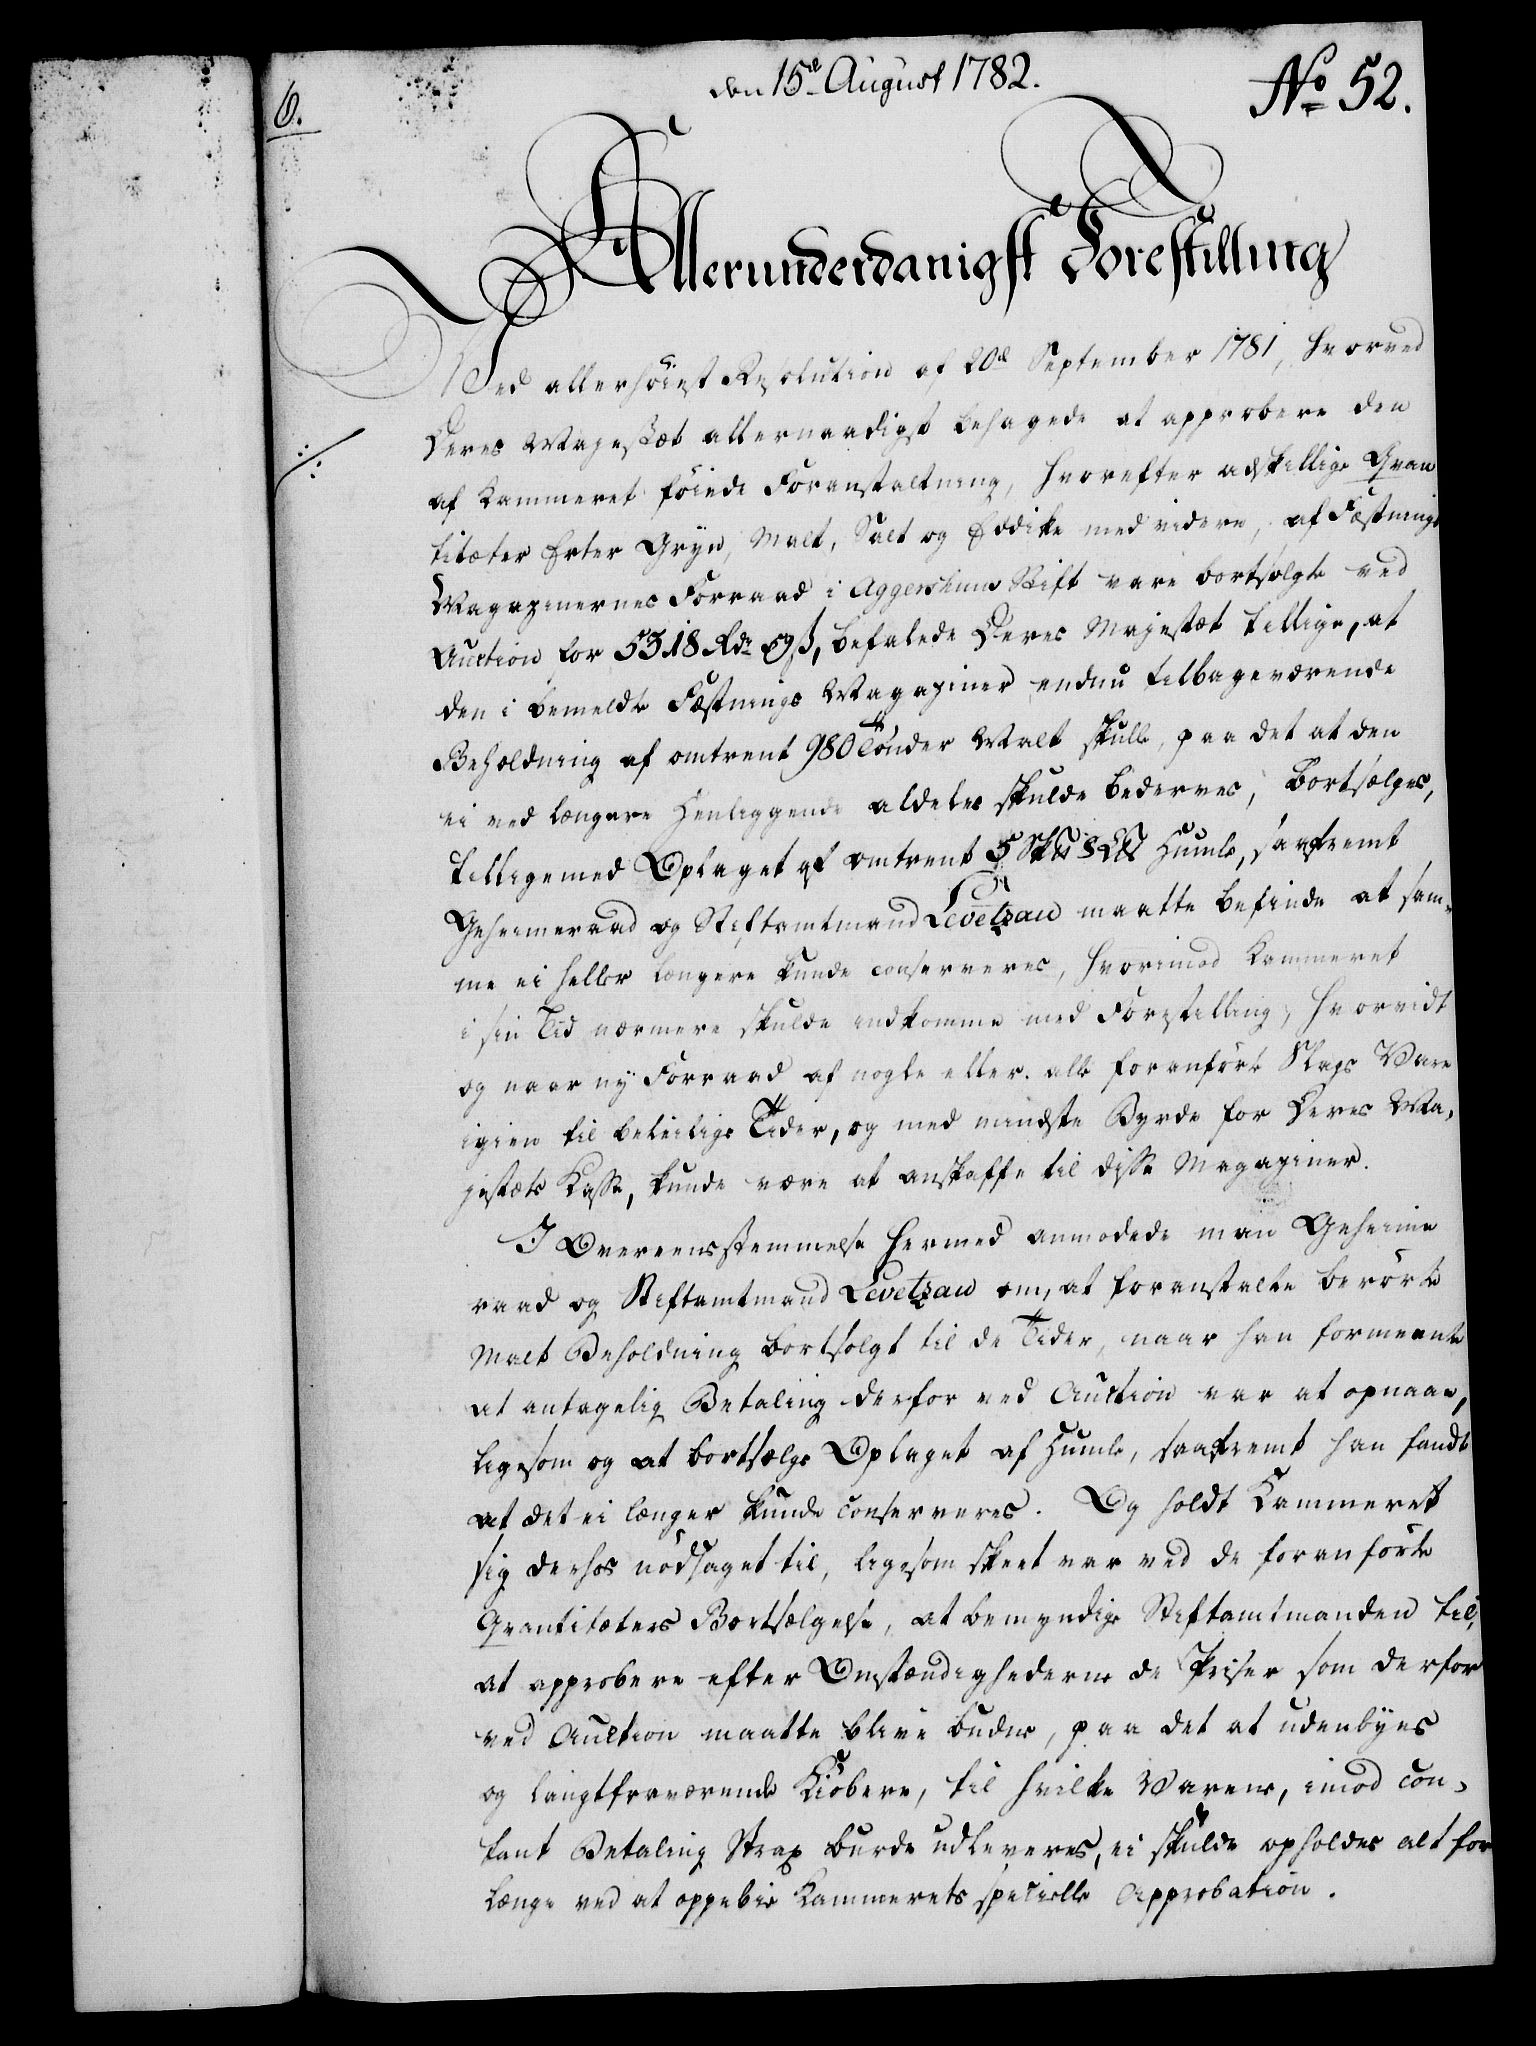 den 15de August 1782.
No 52.
6.
Allerunderdanigst Forestilling
Ved allerhöiest Resolution af 20de September 1781, hvorved
Deres Majestæt allernaadigst behagede at approbere den
af Kammeret föiede Foranstaltning, hvorefter adskillige Qvan
titæter Erter Gryn, Malt, Salt og Eddike med videre, af Fæstnings
Magazinernes Forraad i Aggershuus Stift vare bortsolgte ved
Auction for 5318 Rdr 59 s, befalede Deres Majestæt tillige, at
den i bemeldte Fæstnings Magaziner endnu tilbageværende
Beholdning af omtrent 980 Tönder Malt skulle, paa det at den
ei ved længere Henliggende aldeles skulde bederves, bortsælges,
tilligemed Oplaget af omtrent 5 Sk℔ 8 L℔ Humle, saafremt
Geheimeraad og Stiftamtmand Levetzau maatte befinde at sam-
me ei heller længere kunde conserveres, hvorimod Kammeret
i sin Tid nærmere skulde indkomme med Forestilling, hvorvidt
og naar ny Forraad af nogle eller alle foranförte Slags Vare
igien til beleilige Tider, og med mindste Byrde for Deres Ma-
jestæts Kasse, kunde være at anskaffe til disse Magaziner.
I Overeensstemmelse hermed anmodede man Geheime
raad og Stiftamtmand Levetzau om, at foranstalte berörte
Malt Beholdning bortsolgt til de Tider, naar han formeente
at antagelig Betaling derfor ved Auction var at opnaae,
ligesom og at bortsælge Oplaget af Humle, saafremt han fandt
at det ei længer kunde conserveres. Og holdt Kammeret
sig derhos nödsaget til, ligesom skeet var ved de foranförte
Qvantitæters Bortsælgelse, at bemyndige Stiftamtmanden til,
at approbere efter Omstændighederne de Priser som derfor
ved Auction maatte blive budne, paa det at udenbyes
og langtfraværende Kiöbere, til hvilke Varene, imod con-
tant Betaling strax burde udleveres, ei skulde opholdes alt for
længe ved at oppebie Kammerets specielle Approbation.